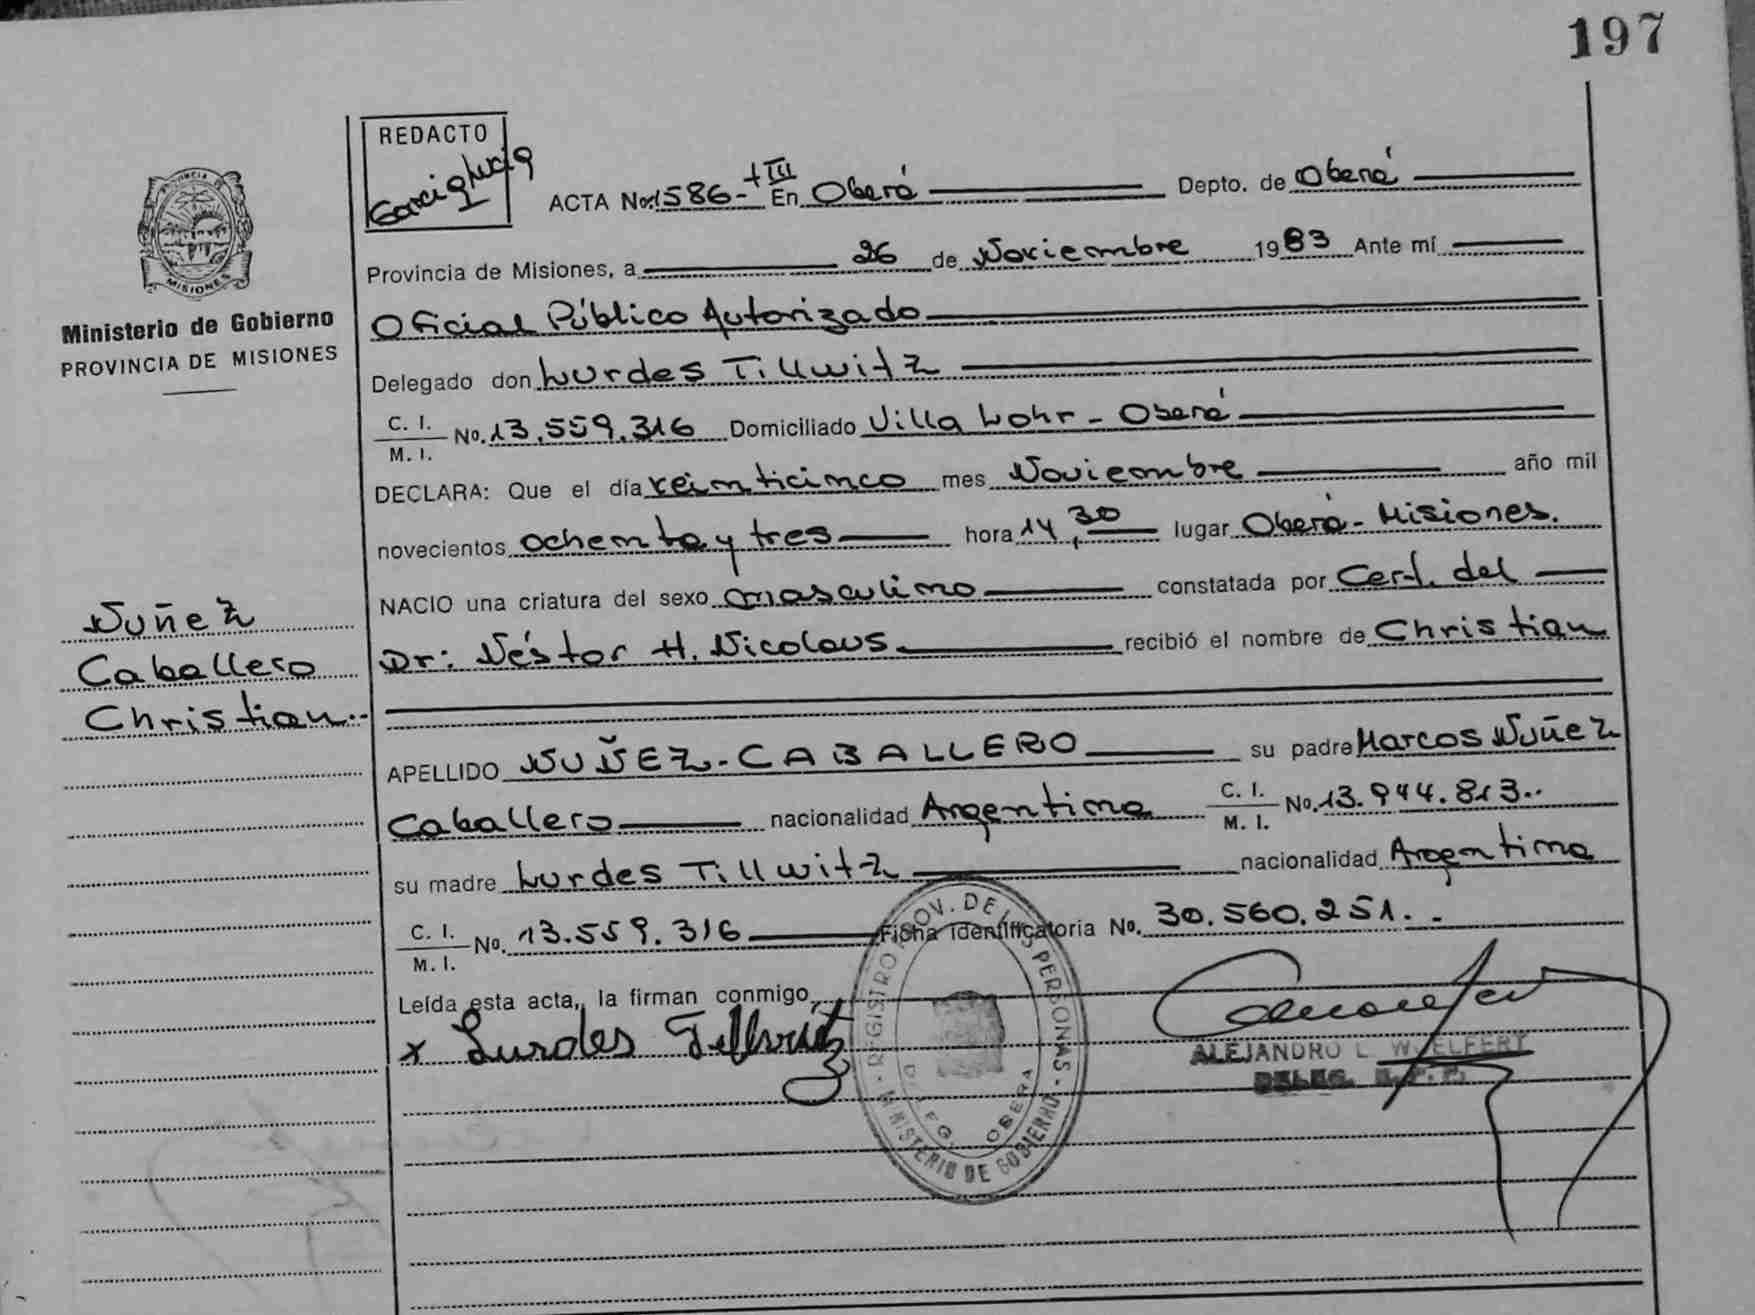 197
REDACTO
Garcia Lucia
ACTA No. 1586-tIII En Oberá Depto. de Oberá
Provincia de Misiones, a 26 de Noviembre 1983 Ante mí
Oficial Público Autorizado
Delegado don Lurdes Tillwitz
C. I. / M. I. No. 13.559.316 Domiciliado Villa Lohr - Oberá
DECLARA: Que el día veinticinco mes Noviembre año mil
novecientos ochenta y tres hora 14,30 lugar Oberá - Misiones.
NACIO una criatura del sexo masculino constatada por Cert. del
Dr: Néstor H. Nicolaus recibió el nombre de Christian
APELLIDO NUÑEZ-CABALLERO su padre Marcos Nuñez
Caballero nacionalidad Argentina C. I. / M. I. No. 13.944.813..
su madre Lurdes Tillwitz nacionalidad Argentina
C. I. / M. I. No. 13.559.316 Ficha identificatoria No. 30.560.251..
Leída esta acta, la firman conmigo,
x Lurdes Tillwitz
ALEJANDRO L. WOELFERT
DELEG. R. P. P.
REGISTRO PROV. DE LAS PERSONAS - MINISTERIO DE GOBIERNO
DELEG. OBERA
PROVINCIA DE
MISIONES
Ministerio de Gobierno
PROVINCIA DE MISIONES
Nuñez
Caballero
Christian.-